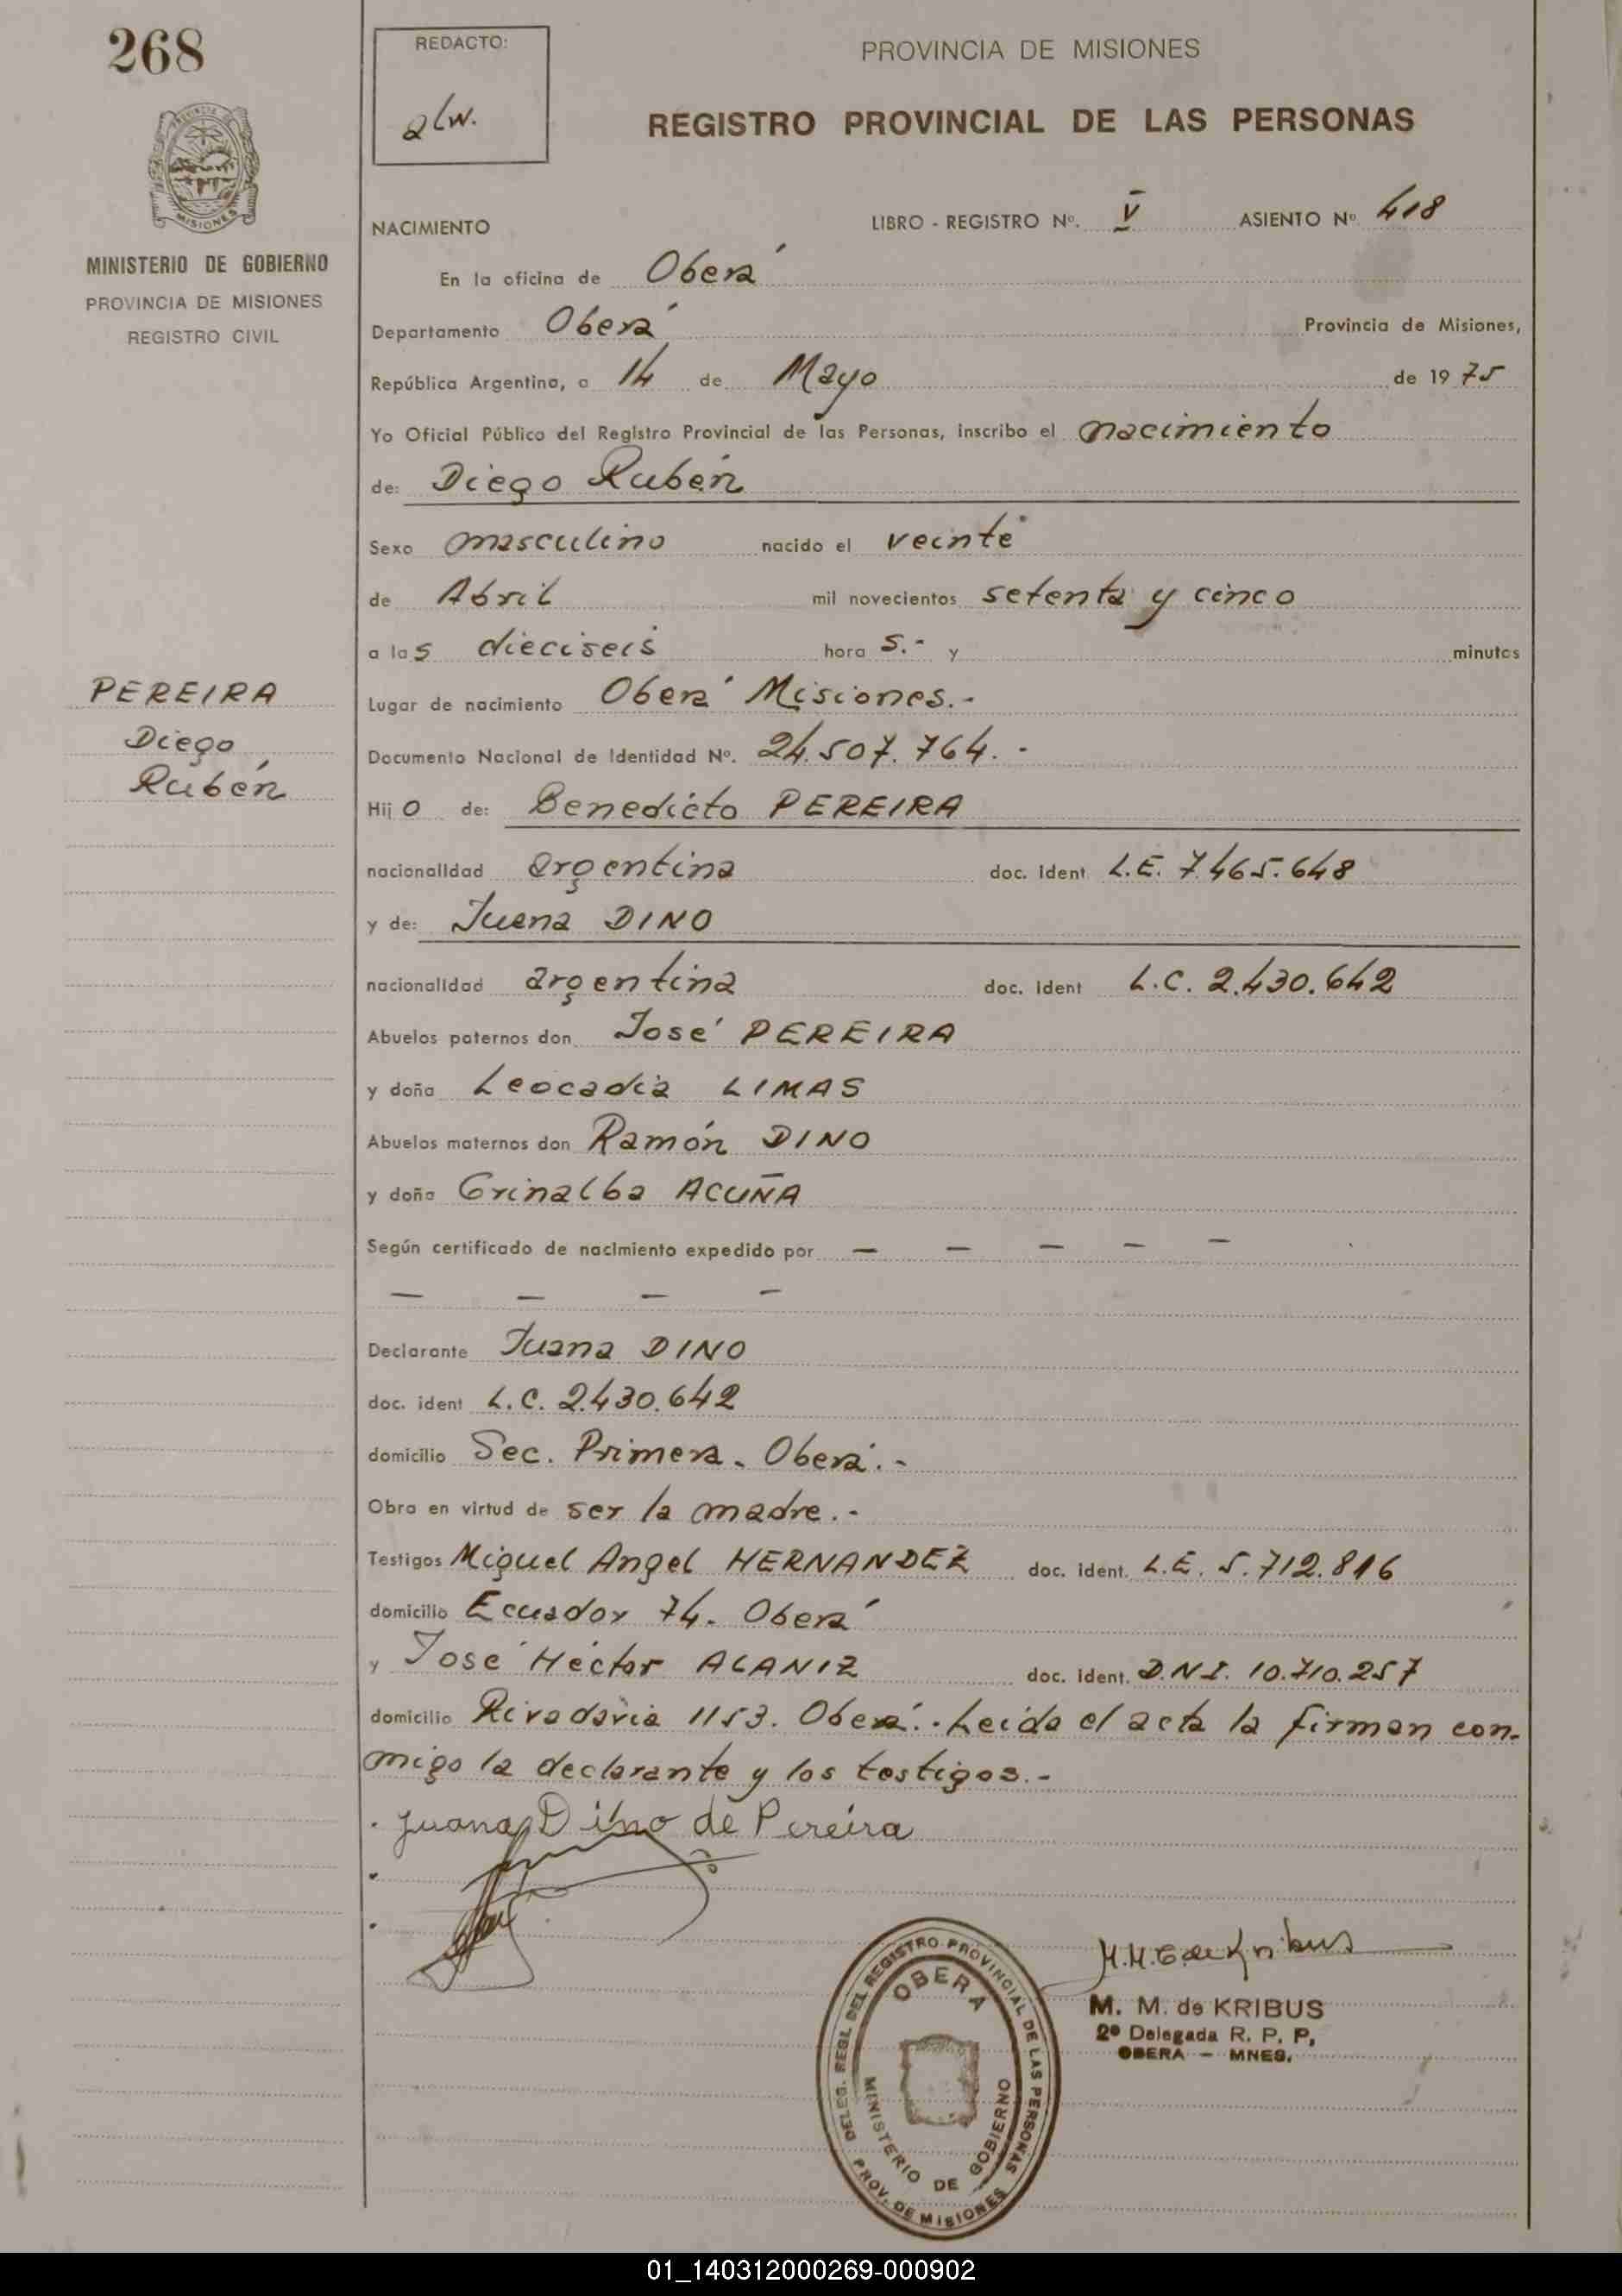 268
REDACTO:
alw.
PROVINCIA DE MISIONES
REGISTRO PROVINCIAL DE LAS PERSONAS
MISIONES
MINISTERIO DE GOBIERNO
PROVINCIA DE MISIONES
REGISTRO CIVIL
NACIMIENTO LIBRO - REGISTRO Nº. V ASIENTO Nº 418
En la oficina de Oberá
Departamento Oberá Provincia de Misiones,
República Argentina, a 14 de Mayo de 1975
Yo Oficial Público del Registro Provincial de las Personas, inscribo el nacimiento
de: Diego Rubén
Sexo masculino nacido el veinte
de Abril mil novecientos setenta y cinco
a las dieciseis hora s.- y minutos
PEREIRA
Diego
Rubén
Lugar de nacimiento Oberá Misiones.-
Documento Nacional de Identidad Nº. 24.507.764.-
Hijo de: Benedicto PEREIRA
nacionalidad argentina doc. ident L.E. 7.465.648
y de: Juana DINO
nacionalidad argentina doc. ident L.C. 2.430.642
Abuelos paternos don José PEREIRA
y doña Leocadia LIMAS
Abuelos maternos don Ramón DINO
y doña Grinalba ACUÑA
Según certificado de nacimiento expedido por — — — — —
— — — —
Declarante Juana DINO
doc. ident L.C. 2.430.642
domicilio Sec. Primera. Oberá.-
Obra en virtud de ser la madre.-
Testigos Miguel Angel HERNANDEZ doc. ident. L.E. 5.712.816
domicilio Ecuador 74. Oberá
y José Héctor ALANIZ doc. ident. D.N.I. 10.710.257
domicilio Rivadavia 1153. Oberá.- Leida el acta la firman con-
migo la declarante y los testigos.-
Juana Dino de Pereira
M.M. de Kribus
M. M. de KRIBUS
2º Delegada R. P. P,
OBERA - MNES.
DELEG. REGL DEL REGISTRO PROVINCIAL DE LAS PERSONAS
OBERA
MINISTERIO DE GOBIERNO
PROV. DE MISIONES
01_140312000269-000902